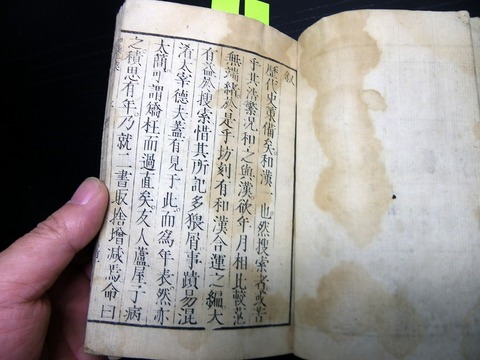 歷代史乘備矣和漢一也然搜索者或苦
乎其浩繁況和之與漢欲年月相比較茫
無端緒於是乎坊刻有和漢合運之編大
有益於搜索惜其所記多猥屑事蹟易混
淆太宰德夫蓋有見于此而為年表然亦
太簡可謂矯枉而過直矣友人蘆屋子病
之積思有年乃就二書取捨增減焉命曰